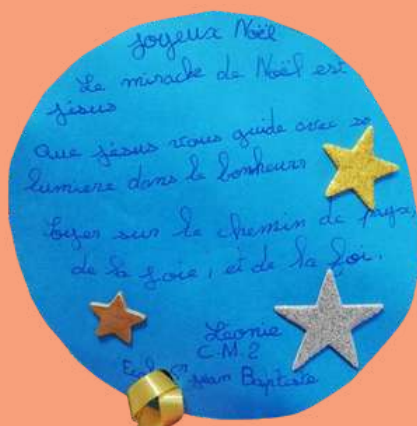 joyeux Noël
Le miracle de Noël est
jésus
Que jésus vous guide avec sa
lumière dans le bonheur
Soyer sur le chemin de
de la joie, et de la foi.
Léonie
C.M.2
Ecole St jean Baptiste